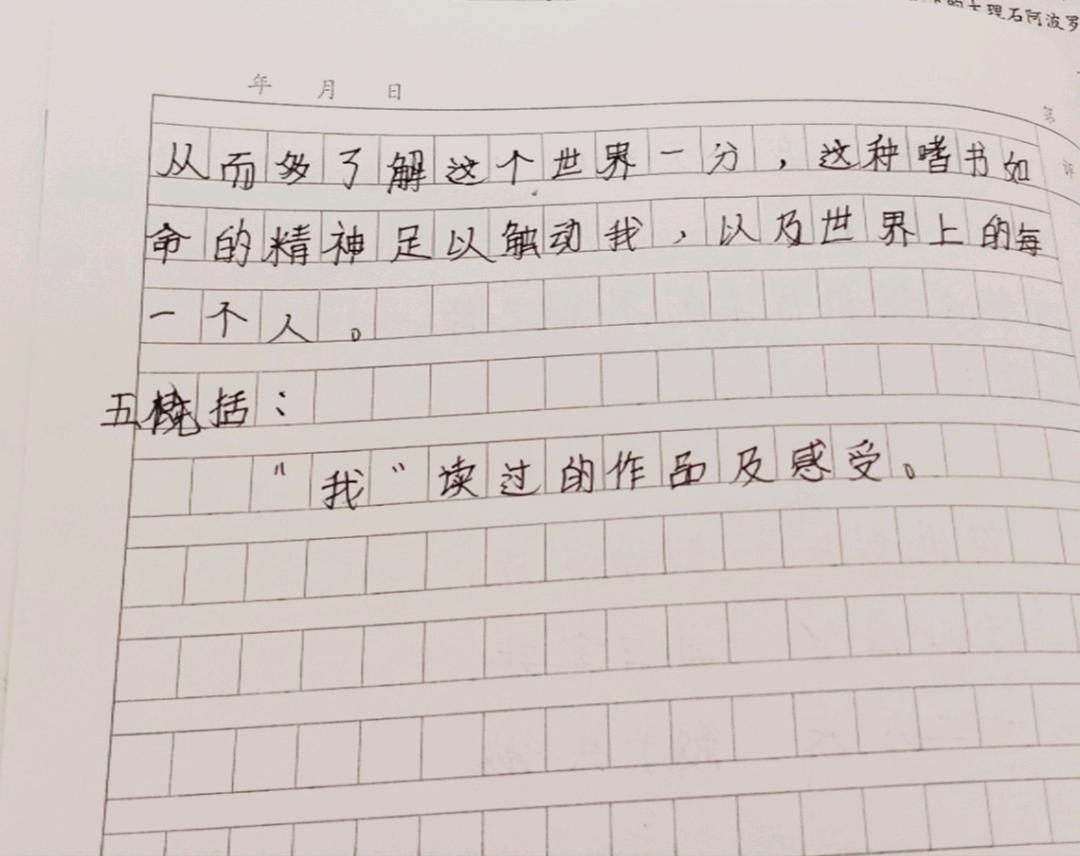 大理石阿波罗
年 月 日
第
从而多了解这个世界一分，这种嗜书如
命的精神足以触动我，以及世界上的每
一个人。
五概括：
“我”读过的作品及感受。